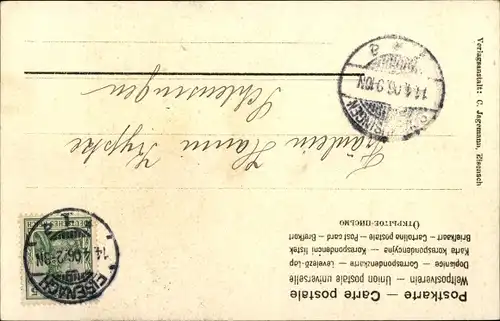 Postkarte — Carte postale
Weltpostverein — Union postale universelle
Dopisnice — Correspondenzkarte — Levelező-Lap
Karta korespondencyjna — Korespondencni listek
Briefkaart — Cartolina postale — Post card — Brefkort
ОТКРЫТОЕ-ПИСЬМО
Fräulein Hanni Kypke
Schleusingen
Verlagsanstalt: C. Jagemann, Eisenach
EISENACH
14.4.06
14.4.06.9-10N